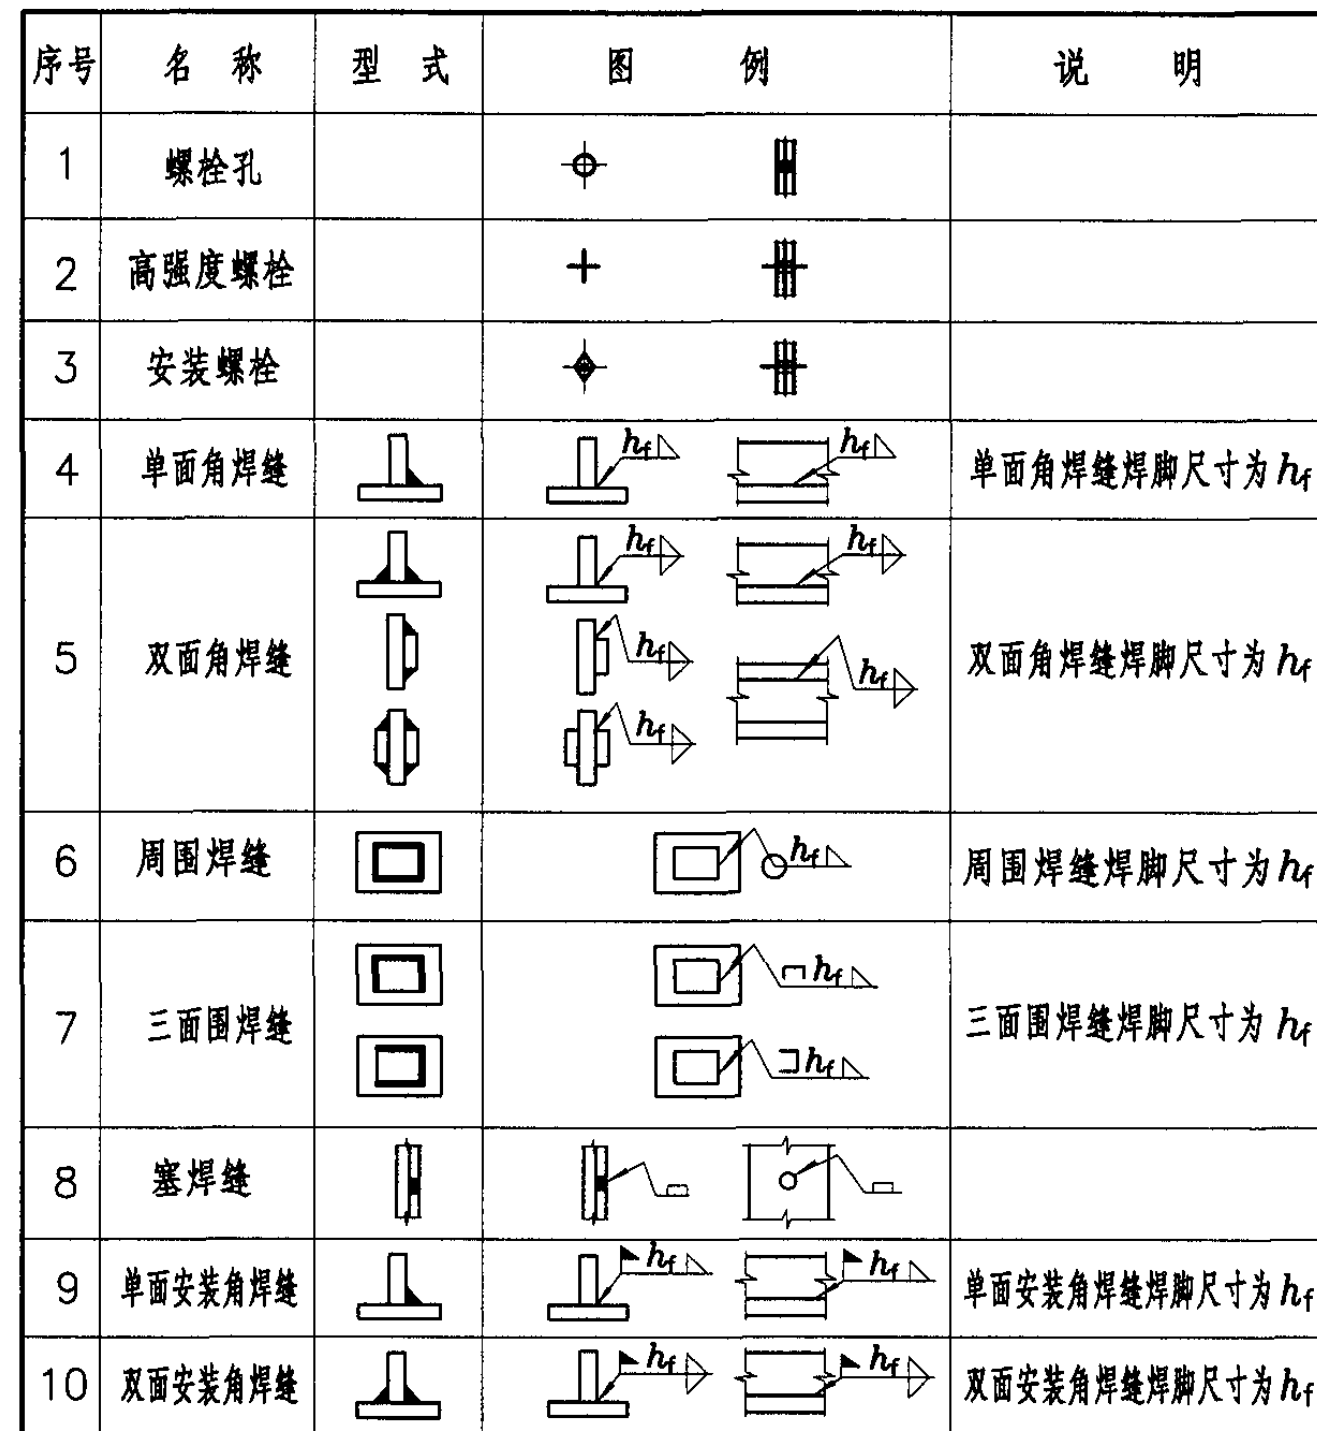 序号 名称 型式 图例 说明
1 螺栓孔
2 高强度螺栓
3 安装螺栓
4 单面角焊缝 hf hf 单面角焊缝焊脚尺寸为hf
5 双面角焊缝 hf hf hf hf hf 双面角焊缝焊脚尺寸为hf
6 周围焊缝 hf 周围焊缝焊脚尺寸为hf
7 三面围焊缝 hf hf 三面围焊缝焊脚尺寸为hf
8 塞焊缝
9 单面安装角焊缝 hf hf 单面安装角焊缝焊脚尺寸为hf
10 双面安装角焊缝 hf hf 双面安装角焊缝焊脚尺寸为hf